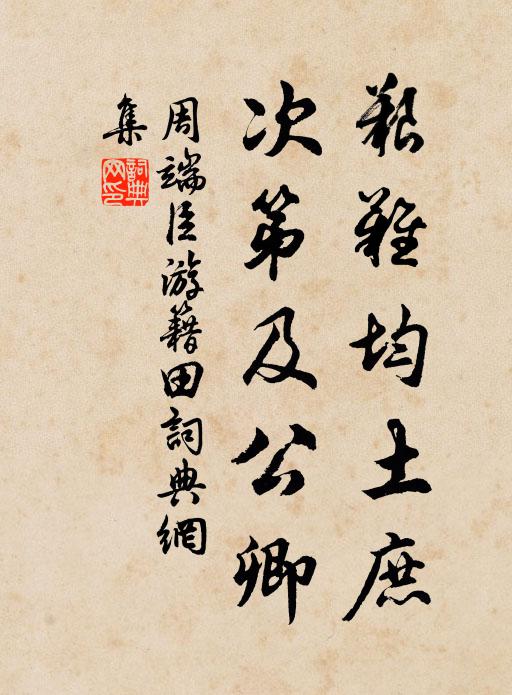 艱難均土庶
次第及公卿
周端臣游籍田詞典網
集
詞典
网印